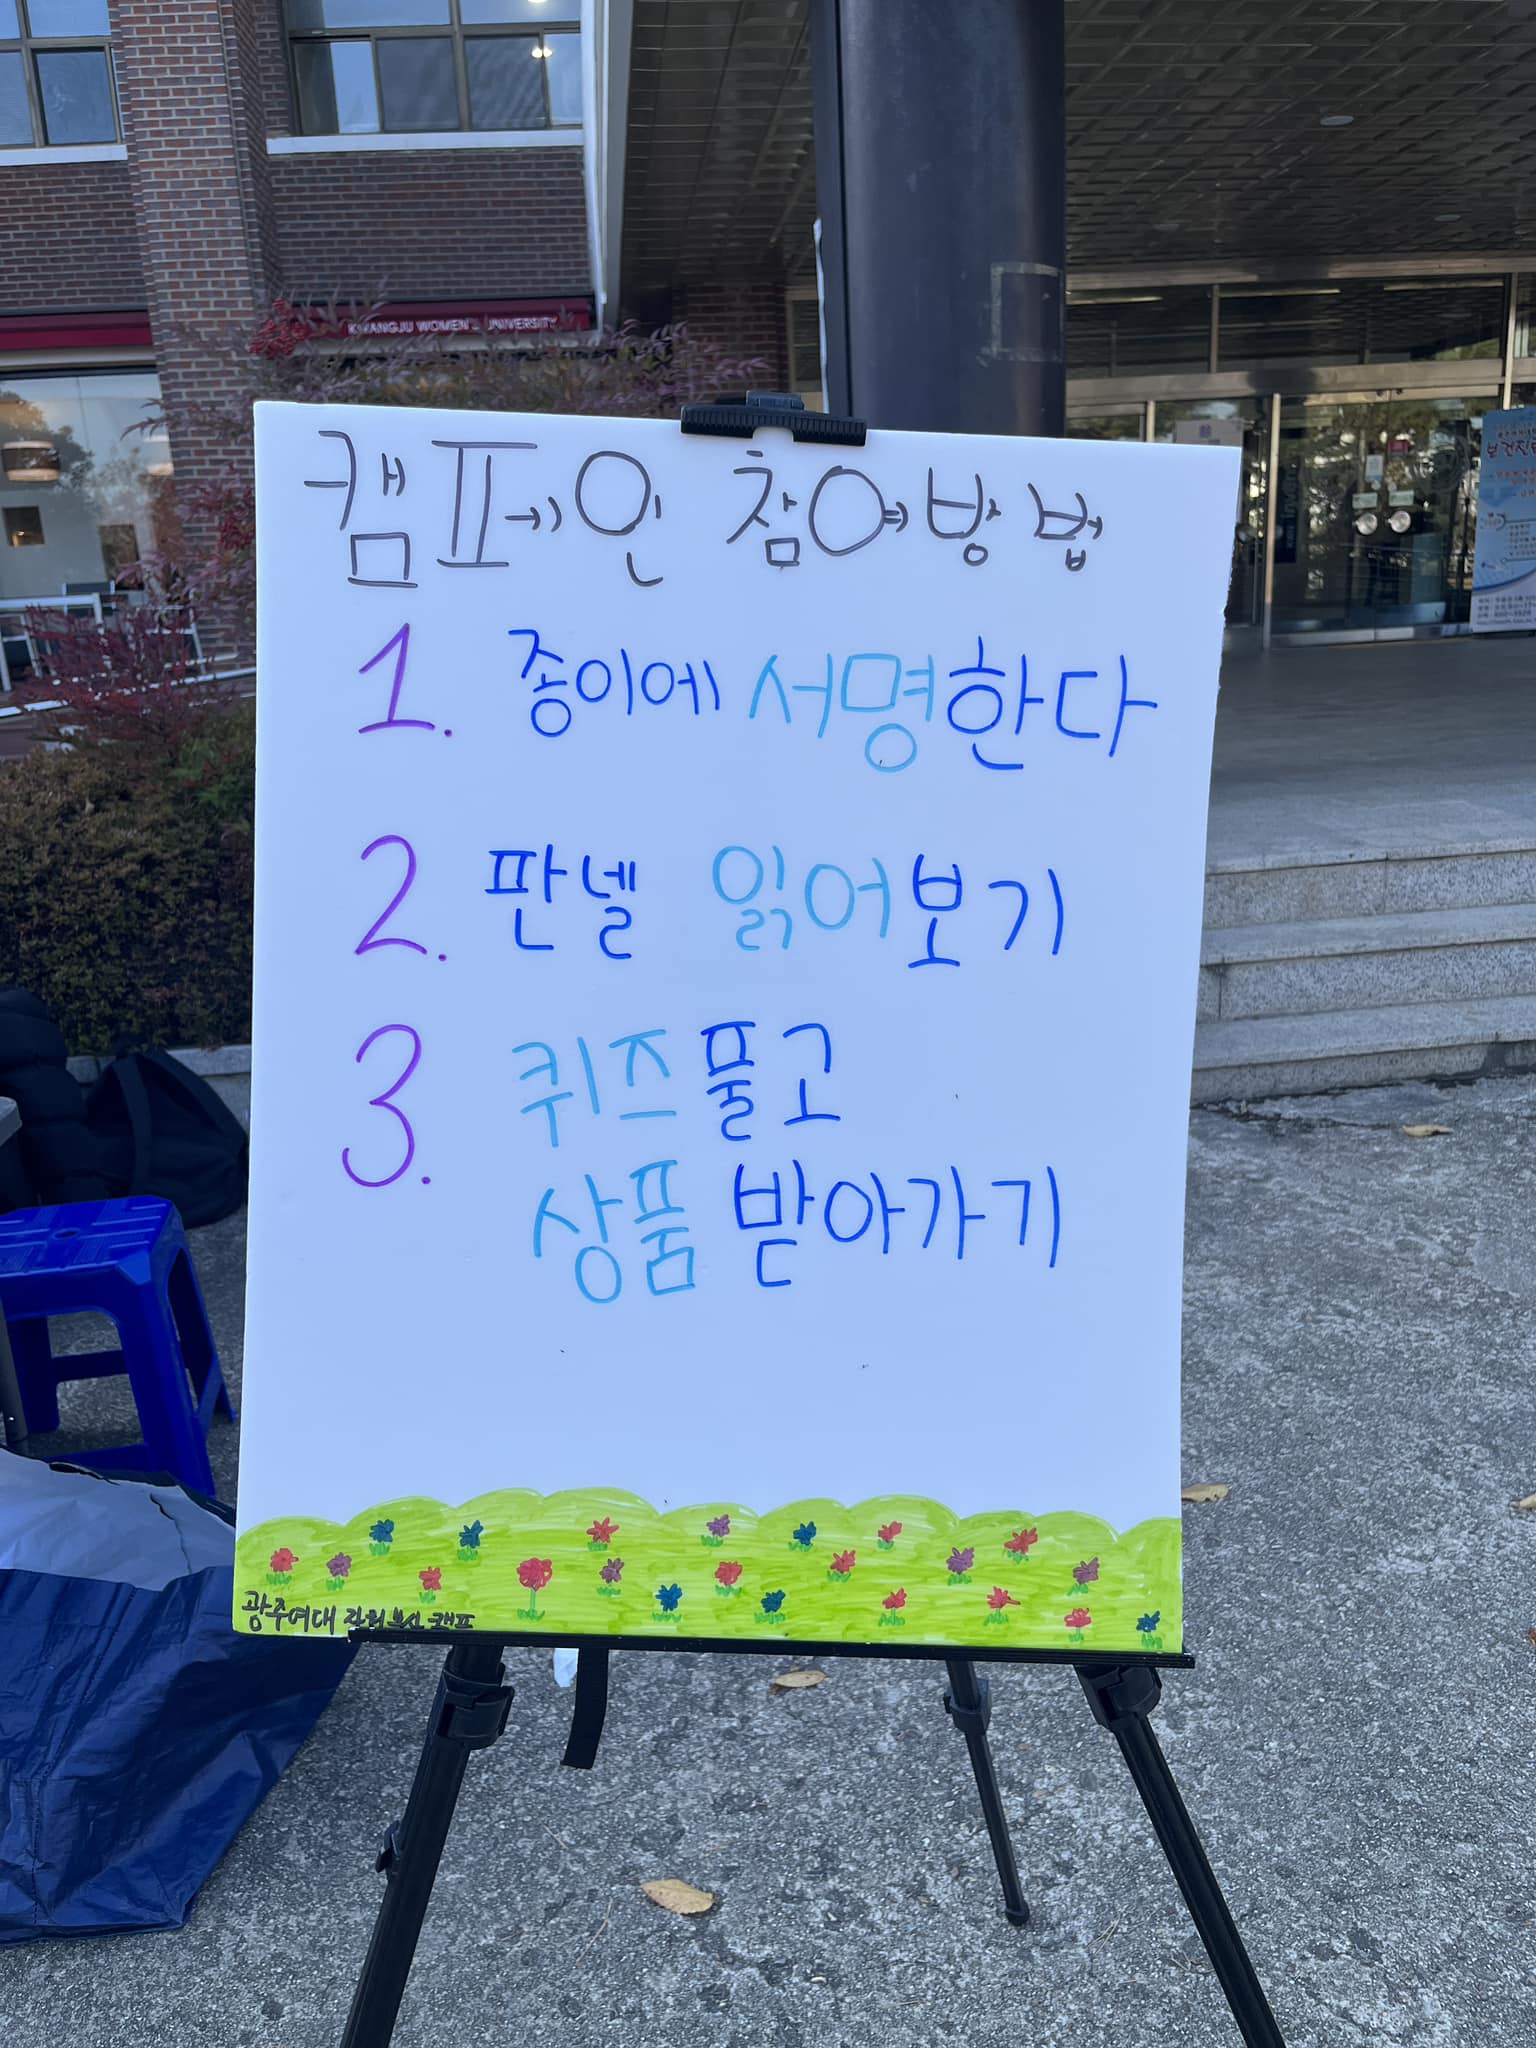 KWANGJU WOMEN'S UNIVERSITY
캠페인 참여방법
1. 종이에 서명한다
2. 판넬 읽어보기
3. 퀴즈풀고
상품 받아가기
광주여대 캠프